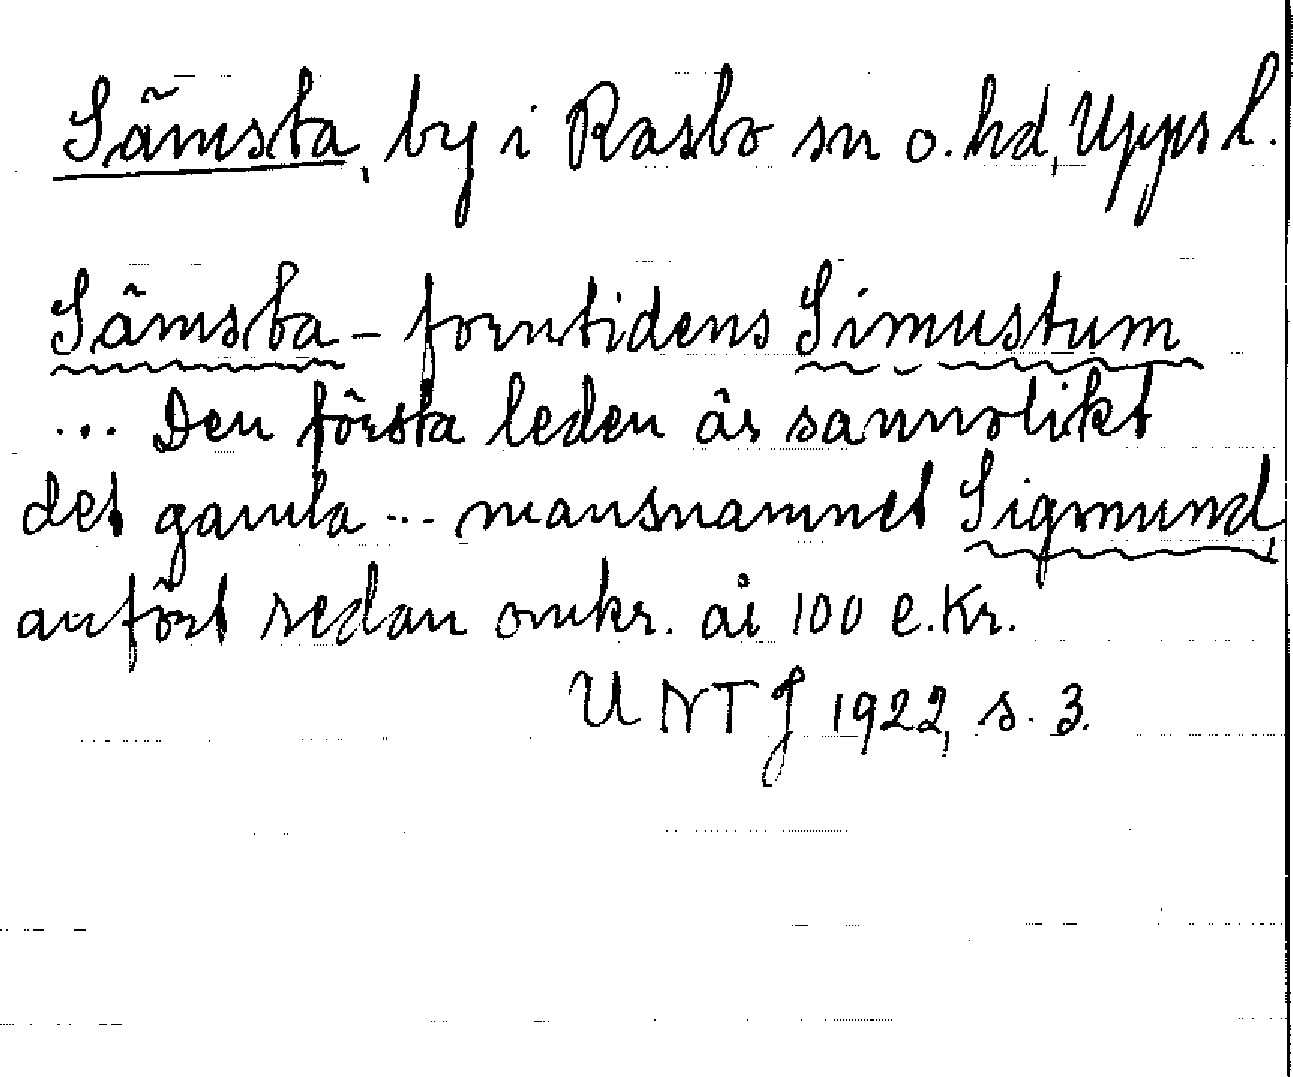 Sämsta, by i Rasbo sn o. hd, Upps l.
Sämsta – forntidens Simustum
... Den första leden är sannolikt
det gamla ... mansnamnet Sigmund,
anfört redan omkr. år 100 e.Kr.
UNTJ 1922, s. 3.